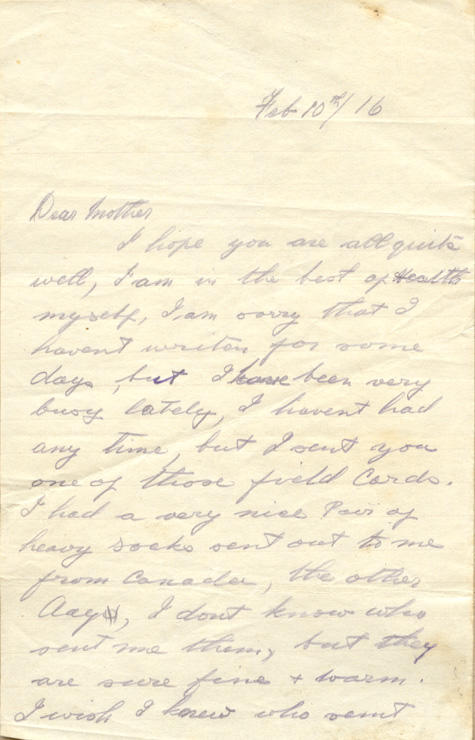 Feb 10th/16
Dear Mother
I hope you are all quite
well, I am in the best of Health
myself, I am sorry that I
havent writen for some
days, but I have been very
busy lately, I havent had
any time, but I sent you
one of those field Cards.
I had a very nice Pair of
heavy socks sent out to me
from Canada, the other
day, I dont know who
sent me them, but they
are sure fine + warm.
I wish I knew who sent